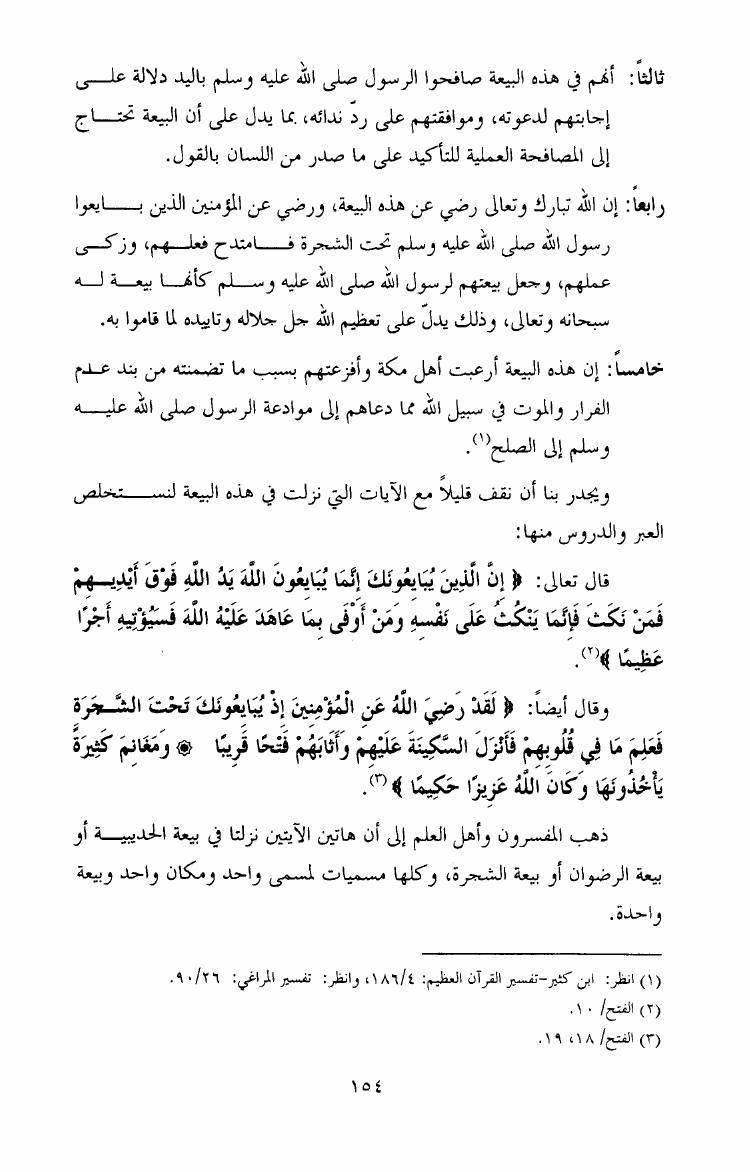 ثالثاً: أنهم في هذه البيعة صافحوا الرسول صلى الله عليه وسلم باليد دلالة على
إجابتهم لدعوته، وموافقتهم على ردّ ندائه، بما يدل على أن البيعة تحتاج
إلى المصافحة العملية للتأكيد على ما صدر من اللسان بالقول.
رابعاً: إن الله تبارك وتعالى رضي عن هذه البيعة، ورضي عن المؤمنين الذين بايعوا
رسول الله صلى الله عليه وسلم تحت الشجرة فامتدح فعلهم، وزكى
عملهم، وجعل بيعتهم لرسول الله صلى الله عليه وسلم كأنها بيعة له
سبحانه وتعالى، وذلك يدلّ على تعظيم الله جل جلاله وتاييده لما قاموا به.
خامساً: إن هذه البيعة أرعبت أهل مكة وأفزعتهم بسبب ما تضمنته من بند عدم
الفرار والموت في سبيل الله مما دعاهم إلى موادعة الرسول صلى الله عليه
وسلم إلى الصلح(١).
ويجدر بنا أن نقف قليلاً مع الآيات التي نزلت في هذه البيعة لنستخلص
العبر والدروس منها:
قال تعالى: ﴿ إِنَّ الَّذِينَ يُبَايِعُونَكَ إِنَّمَا يُبَايِعُونَ اللَّهَ يَدُ اللَّهِ فَوْقَ أَيْدِيهِمْ
فَمَنْ نَكَثَ فَإِنَّمَا يَنْكُثُ عَلَى نَفْسِهِ وَمَنْ أَوْفَى بِمَا عَاهَدَ عَلَيْهُ اللَّهَ فَسَيُؤْتِيهِ أَجْرًا
عَظِيمًا ﴾(٢).
وقال أيضاً: ﴿ لَقَدْ رَضِيَ اللَّهُ عَنِ الْمُؤْمِنِينَ إِذْ يُبَايِعُونَكَ تَحْتَ الشَّجَرَةِ
فَعَلِمَ مَا فِي قُلُوبِهِمْ فَأَنْزَلَ السَّكِينَةَ عَلَيْهِمْ وَأَثَابَهُمْ فَتْحًا قَرِيبًا ۞ وَمَغَانِمَ كَثِيرَةً
يَأْخُذُونَهَا وَكَانَ اللَّهُ عَزِيزًا حَكِيمًا ﴾(٣).
ذهب المفسرون وأهل العلم إلى أن هاتين الآيتين نزلتا في بيعة الحديبية أو
بيعة الرضوان أو بيعة الشجرة، وكلها مسميات لمسمى واحد ومكان واحد وبيعة
واحدة.
(١) انظر: ابن كثير-تفسير القرآن العظيم: ١٨٦/٤، وانظر: تفسير المراغي: ٩٠/٢٦.
(٢) الفتح/ ١٠.
(٣) الفتح/ ١٨، ١٩.
١٥٤